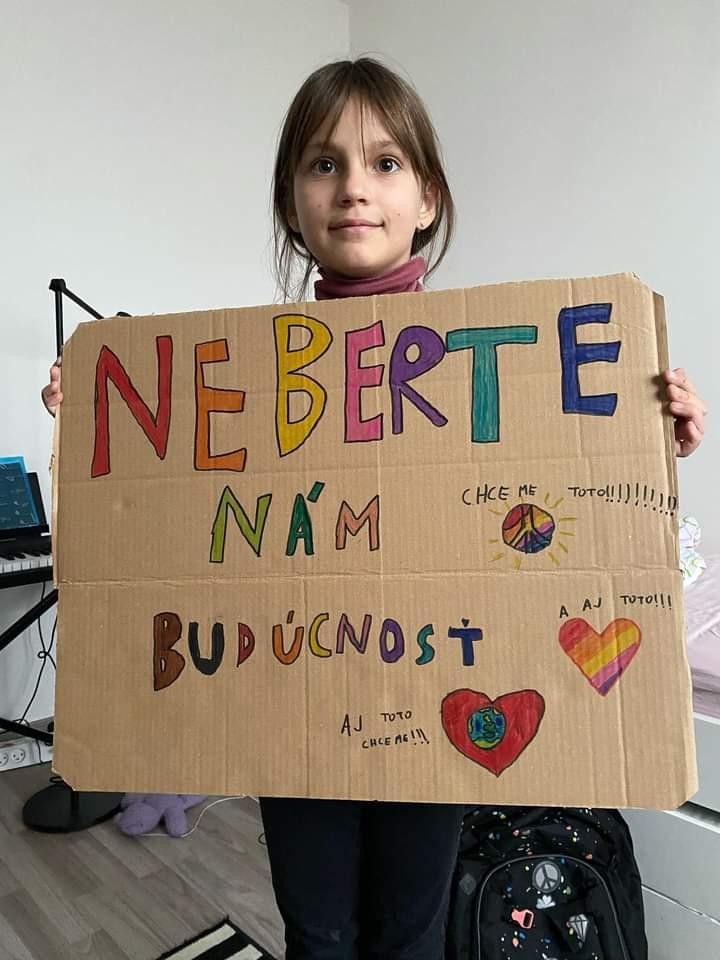 NEBERTE
NÁM
CHCEME TOTO!!!)!!!!!!
BUDÚCNOSŤ
A AJ TOTO!!!
AJ TOTO
CHCEME!!!